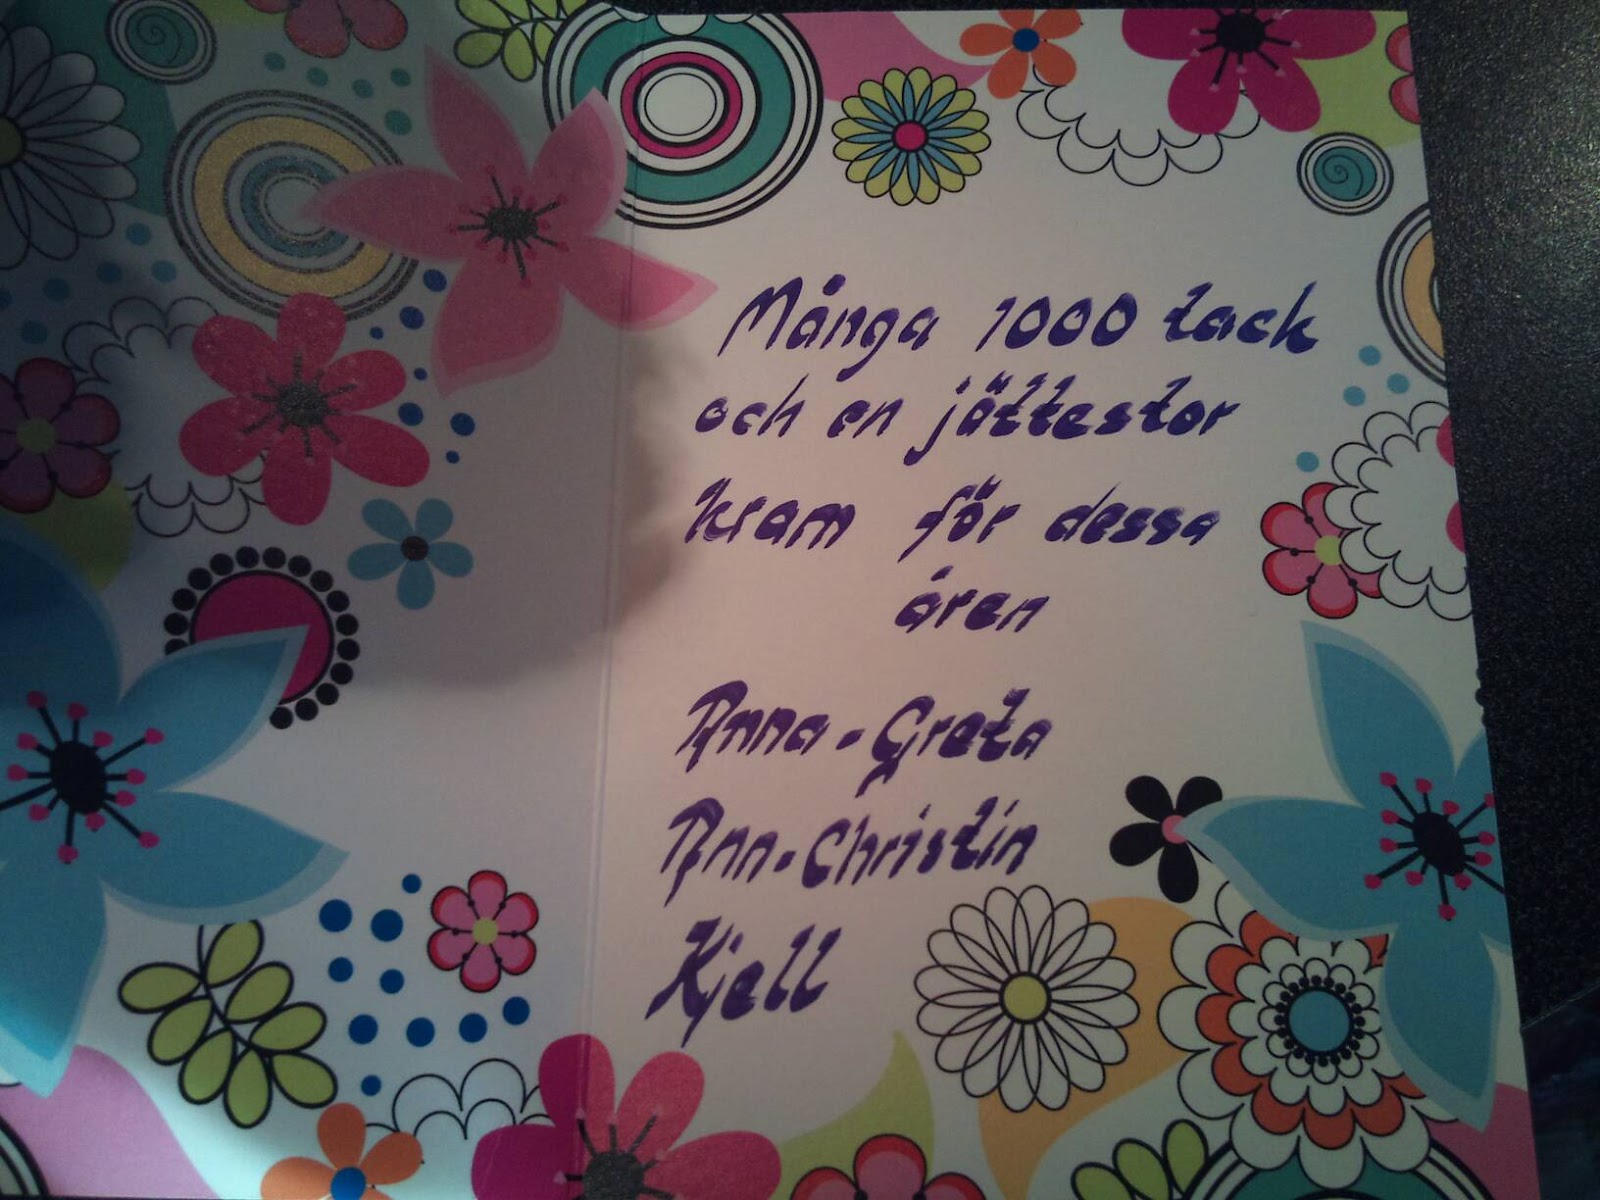 Många 1000 tack
och en jättestor
kram för dessa
åren
Anna-Greta
Ann-Christin
Kjell